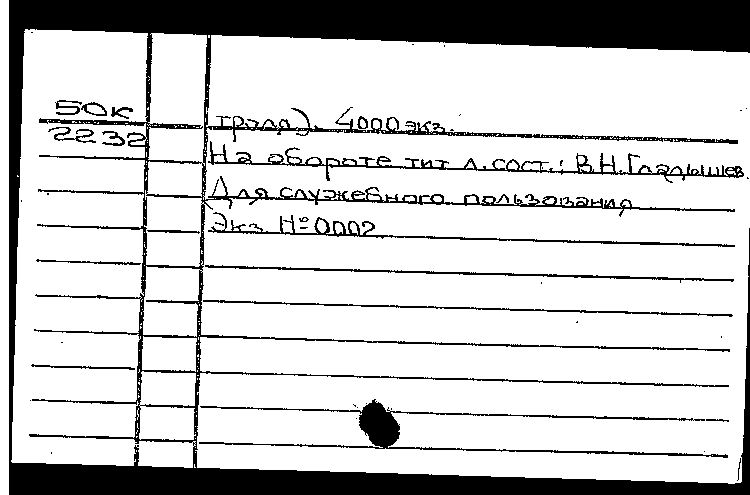 50К
2232
троля). 4000 экз.
На обороте тит л. сост.: В.Н.Гладышев.
Для служебного пользования
Экз №0002